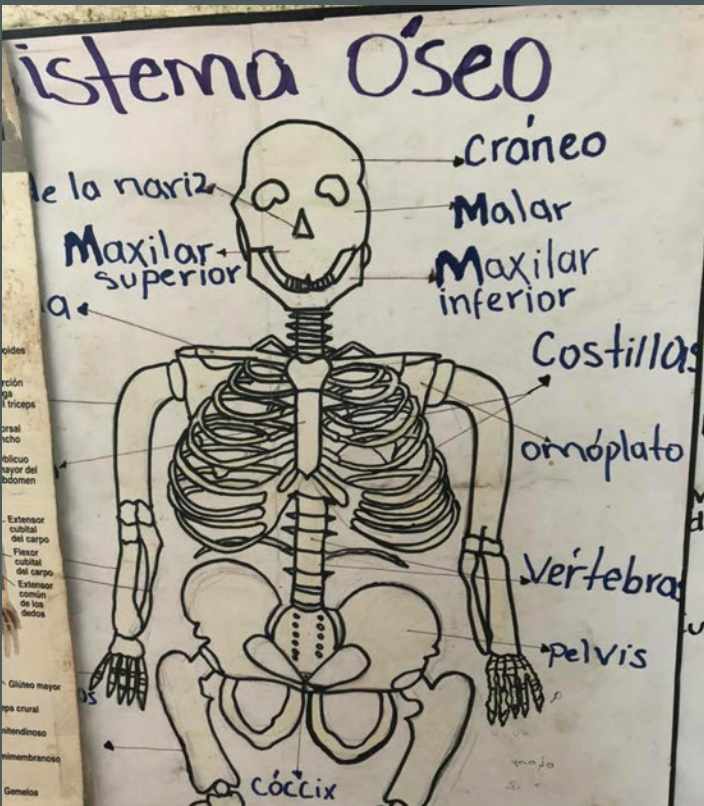 istema Óseo
de la nariz
Cráneo
Malar
Maxilar
superior
Maxilar
inferior
a
Costillas
omóplato
Vertebra
pelvis
cóccix
os
oides
rción
ga
l tríceps
orsal
ncho
blicuo
mayor del
bdomen
Extensor
cubital
del carpo
Flexor
cubital
del carpo
Extensor
común
de los
dedos
Glúteo mayor
eps crural
mitendinoso
mimembranoso
Gemelos